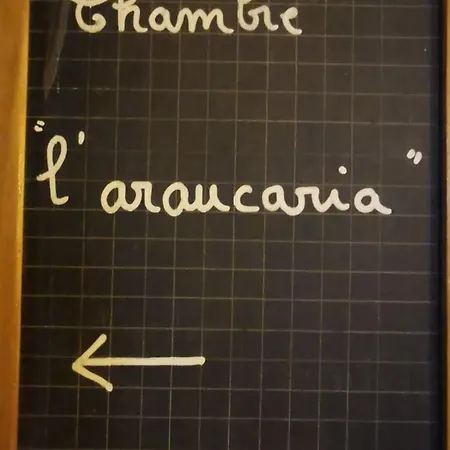 Chambre
"l'araucaria"